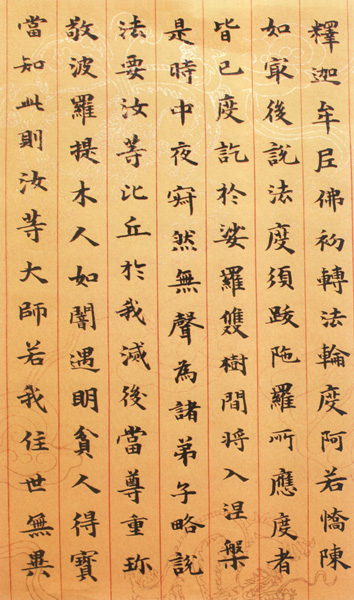 釋迦牟尼佛初轉法輪度阿若憍陳
如冣後說法度須跋陁羅所應度者
皆已度訖於娑羅雙樹間將入涅槃
是時中夜寂然無聲為諸弟子略說
法要汝等比丘於我滅後當尊重珎
敬波羅提木人如闇遇明貧人得寶
當知此則汝等大師若我住世無異